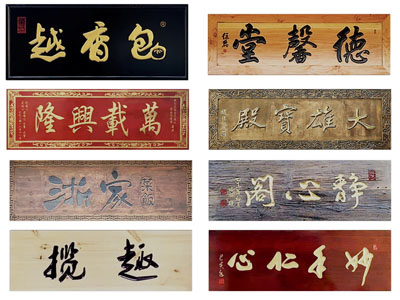 包香越
德馨堂
萬載興隆
大雄寶殿
浙家
静心閣
揽趣
妙手仁心